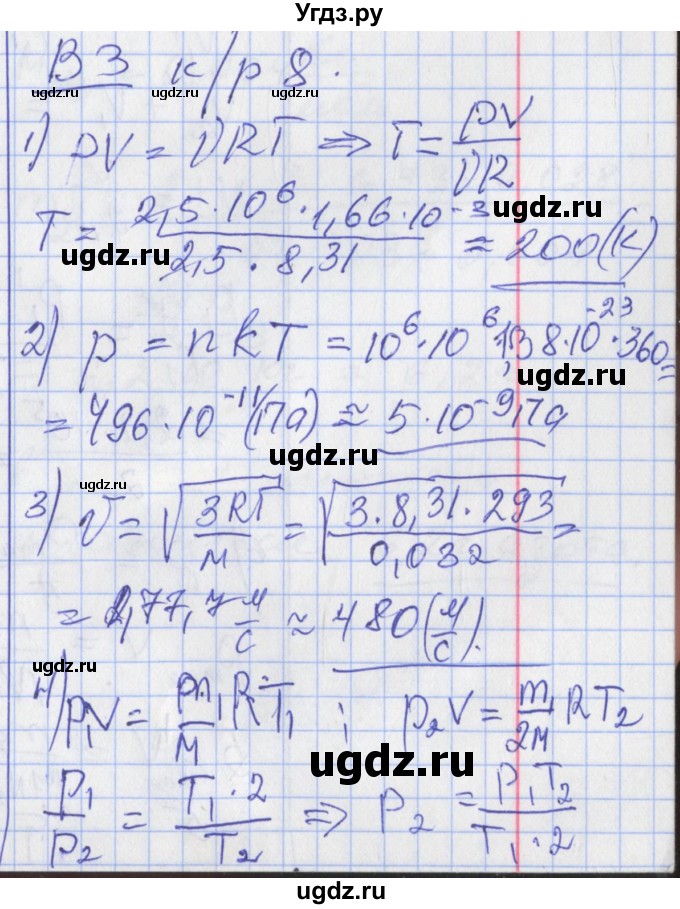 Угдз.ру
В 3 к/р 8.
ugdz.ru ugdz.ru ugdz.ru
1) pV = νRT ⇒ T = pV/νR
T = 2,5·10⁶·1,66·10⁻³/2,5·8,31 = 200(К)
ugdz.ru ugdz.ru
2) p = nkT = 10⁶·10⁶·1,38·10⁻²³·360=
ugdz.ru
= 496·10⁻¹¹(Па) ≈ 5·10⁻⁹Па
ugdz.ru ugdz.ru
3) v = √(3RT/М) = √(3·8,31·293/0,032) =
= 477,7 м/с ≈ 480(м/с).
4) p₁V = m/М RT₁ ; p₂V = m/2М RT₂
ugdz.ru
p₁/p₂ = T₁·2/T₂ ⇒ p₂ = p₁T₂/T₁·2
ugdz.ru